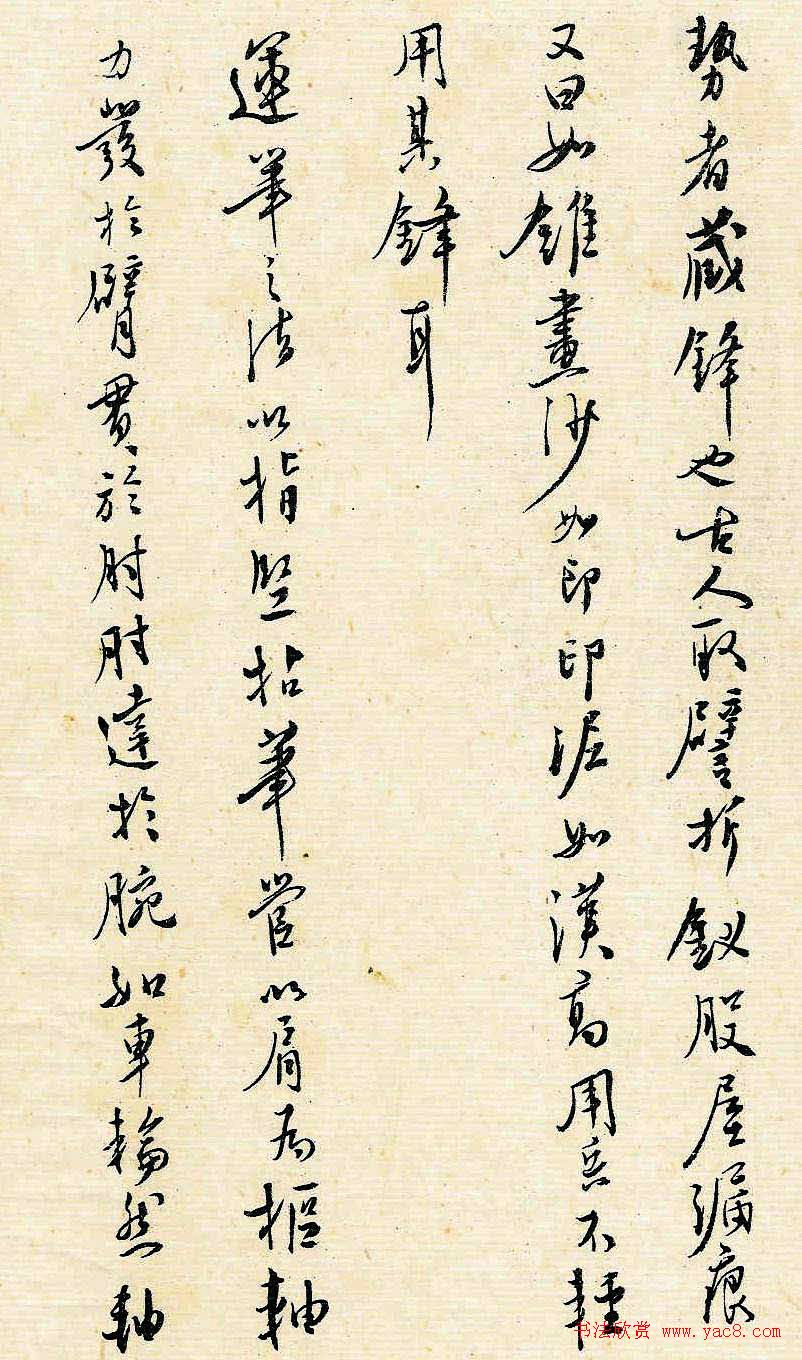 勢者藏鋒也古人取譬折釵股屋漏痕
又曰如錐畫沙如印印泥如漢高用兵不輕
用其鋒耳
運筆之法以指竪拈筆管以肩為樞軸
力發於臂貫於肘肘達於腕如車輪然軸
书法欣赏 www.yac8.com